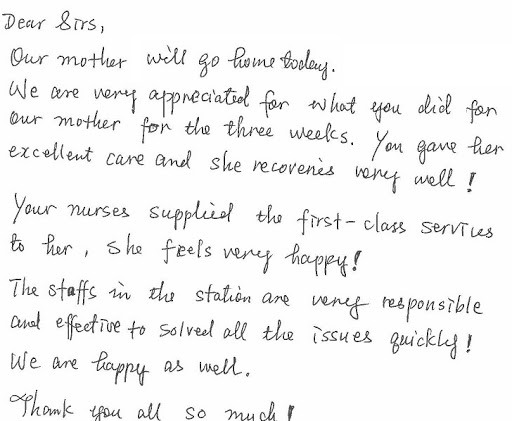 Dear Sirs,
Our mother will go home today.
We are very appreciated for what you did for
our mother for the three weeks. You gave her
excellent care and she recoveries very well!
Your nurses supplied the first-class services
to her, she feels very happy!
The staffs in the station are very responsible
and effective to solved all the issues quickly!
We are happy as well.
Thank you all so much!